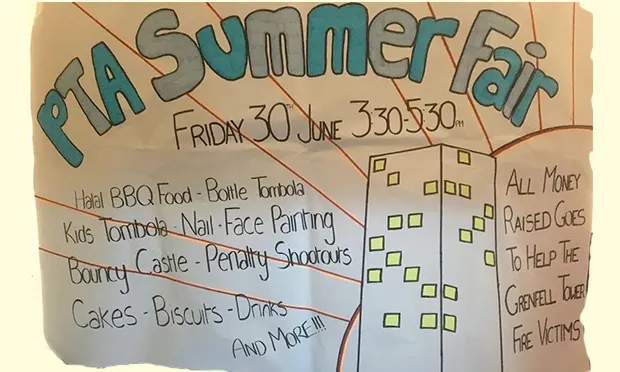 PTA Summer Fair
FRIDAY 30TH JUNE 3:30-5:30PM
Halal BBQ Food - Bottle Tombola
Kids Tombola - Nail - Face Painting
Bouncy Castle - Penalty Shootouts
Cakes - Biscuits - Drinks
AND MORE!!!
ALL MONEY
RAISED GOES
TO HELP THE
GRENFELL TOWER
FIRE VICTIMS